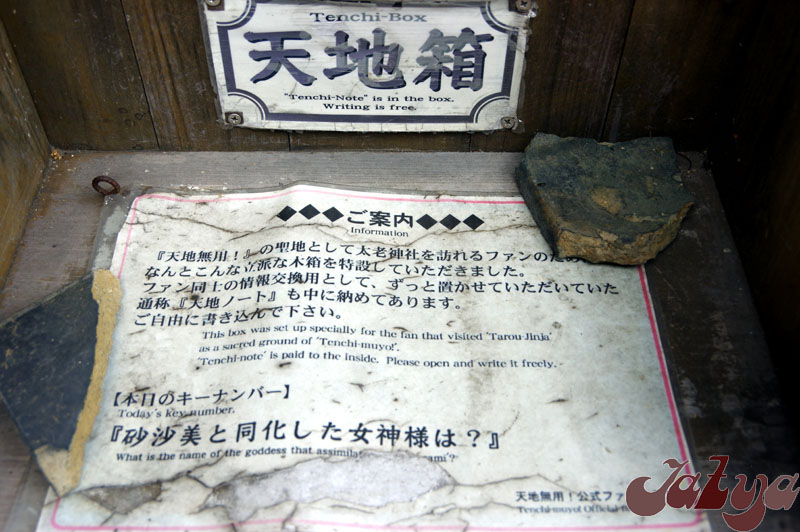 Tenchi-Box
天地箱
"Tenchi-Note" is in the box.
Writing is free.
◆◆◆ご案内◆◆◆
Information
『天地無用!』の聖地として太老神社を訪れるファンのため
なんとこんな立派な木箱を特設していただきました。
ファン同士の情報交換用として、ずっと置かせていただいていた
通称『天地ノート』も中に納めてあります。
ご自由に書き込んで下さい。
This box was set up specially for the fan that visited 'Tarou-Jinja'
as a sacred ground of 'Tenchi-muyo!'.
'Tenchi-note' is paid to the inside. Please open and write it freely.
【本日のキーナンバー】
Today's key number.
『砂沙美と同化した女神様は?』
What is the name of the goddess that assimilat ami'?
天地無用!公式ファ
Tenchi-muyo! Official
Jalya